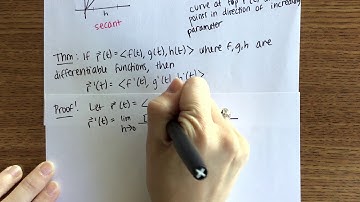 secant
curve at top r
points in direction of increasing
parameter
Thm: If r⃗(t) = <f(t), g(t), h(t)> where f, g, h are
differentiable functions, then
r⃗'(t) = <f'(t), g'(t), h'(t)>
Proof: Let r⃗(t) = <
r⃗'(t) = lim
h→0